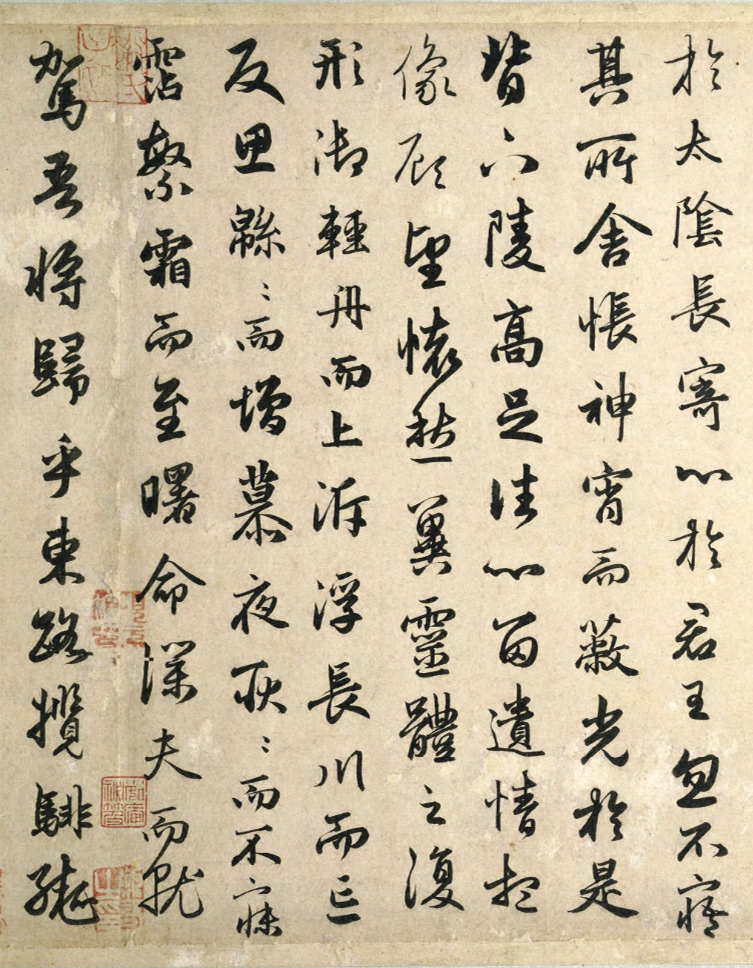 於太陰長寄心於君王忽不寤
其所舍悵神宵而蔽光於是
背下陵高足往心留遺情想
像顧望懷愁冀靈體之復
形御輕舟而上泝浮長川而忘
反思緜〻而增慕夜耿〻而不寐
霑繁霜而至曙命僕夫而就
駕吾將歸乎東路攬騑轡